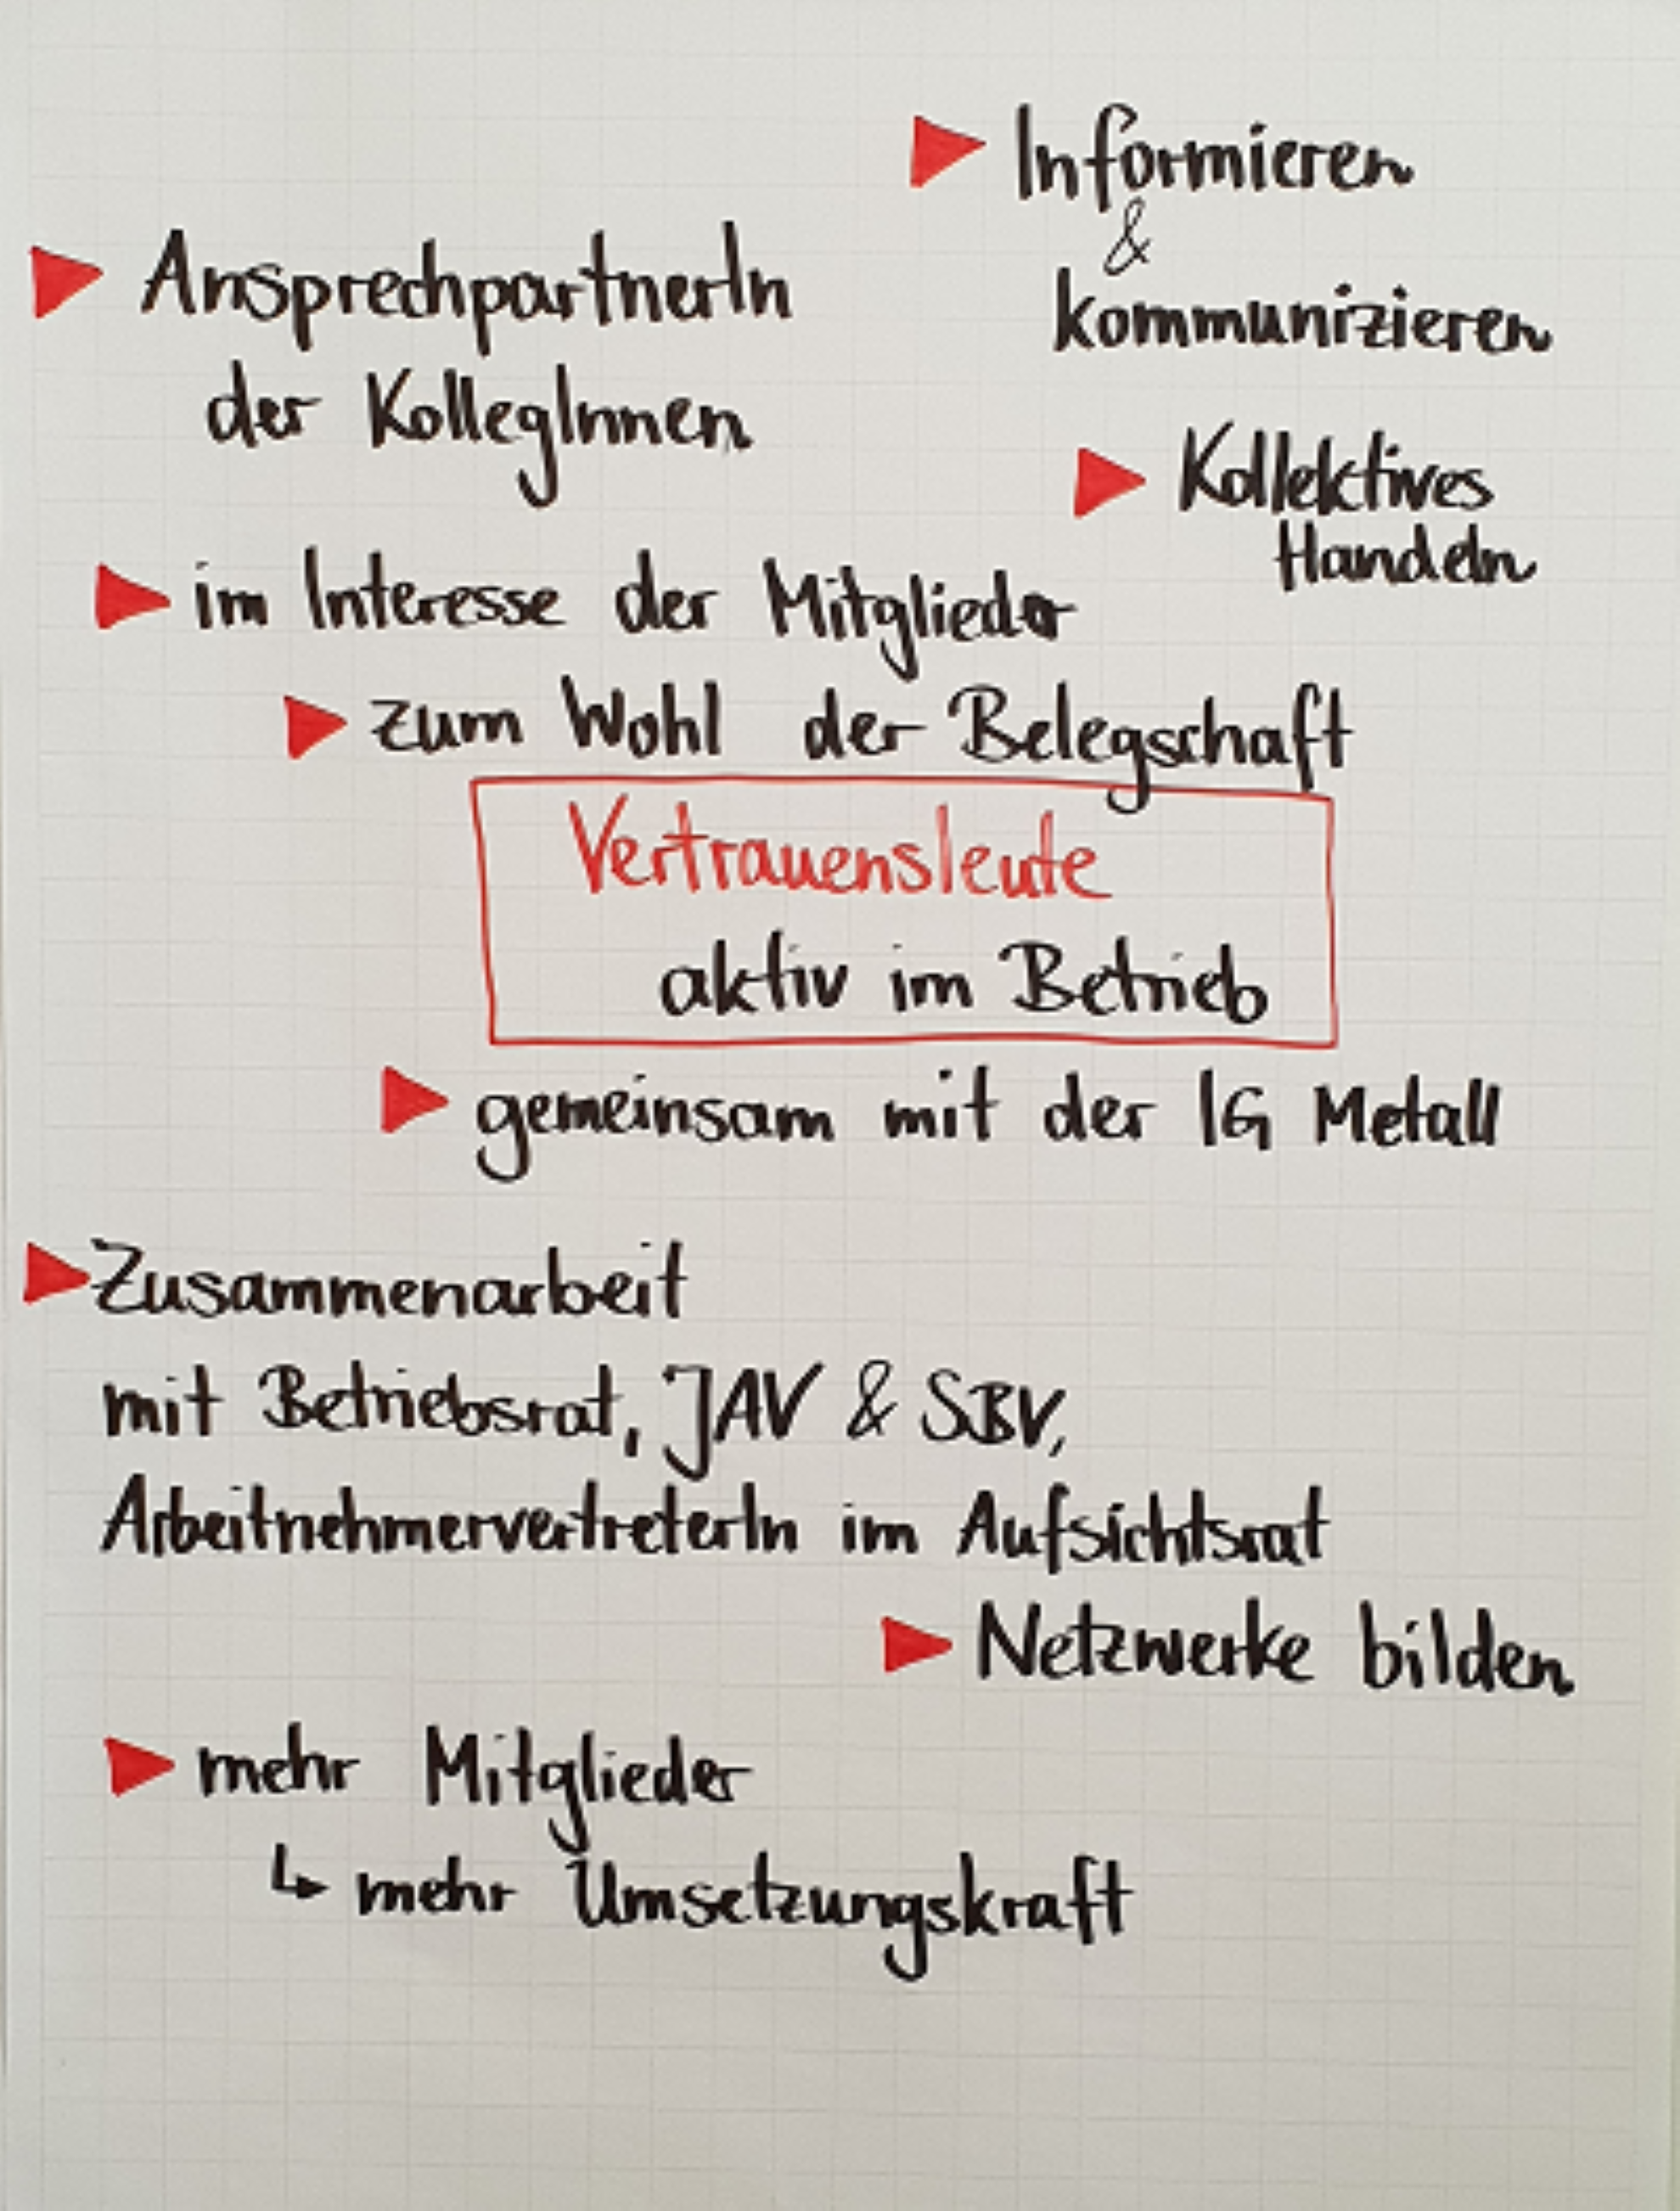 Informieren
&
kommunizieren
AnsprechpartnerIn
der KollegInnen
Kollektives
Handeln
im Interesse der Mitglieder
zum Wohl der Belegschaft
Vertrauensleute
aktiv im Betrieb
gemeinsam mit der IG Metall
Zusammenarbeit
mit Betriebsrat, JAV & SBV,
ArbeitnehmervertreterIn im Aufsichtsrat
Netzwerke bilden
mehr Mitglieder
↳ mehr Umsetzungskraft